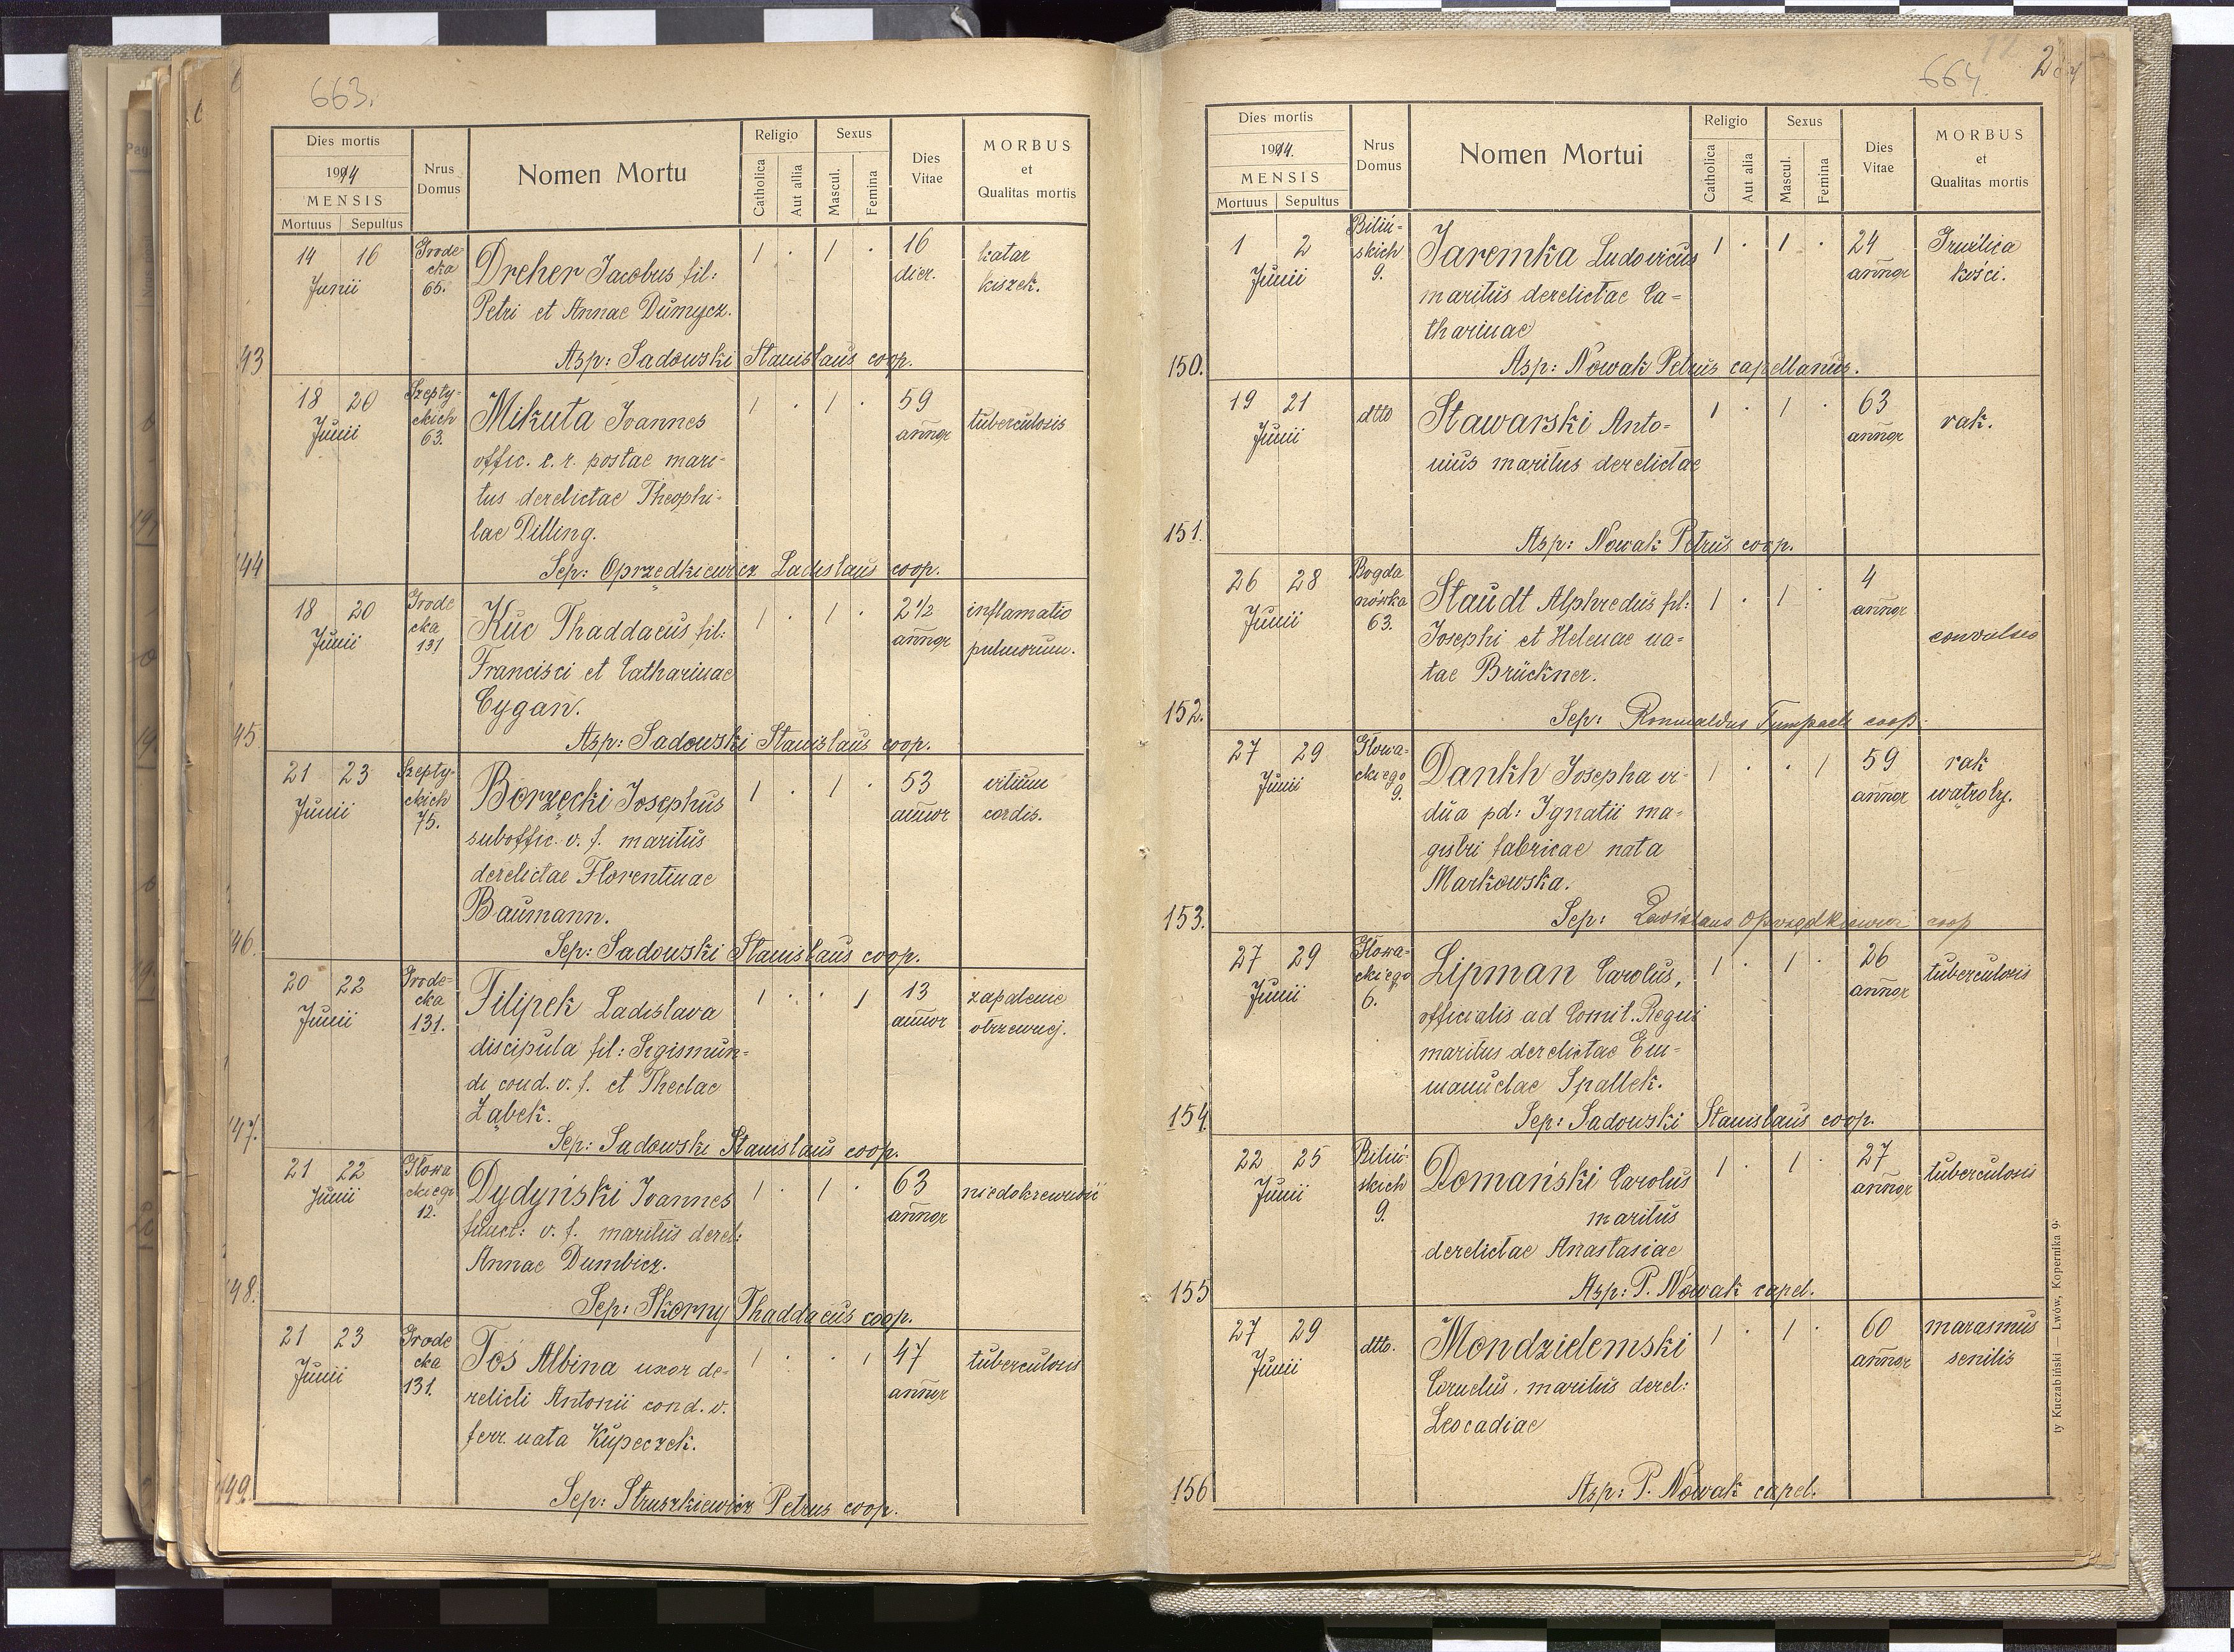 663.
Dies mortis
1914
MENSIS
Mortuus Sepultus
Nrus Domus
Nomen Mortu
Religio
Catholica
Aut allia
Sexus
Mascul.
Femina
Dies Vitae
MORBUS
et
Qualitas mortis
14 16 Grode= Dreher Jacobus fil: 1 . 1 . 16 katar
Junii cka Petri et Annae Dumycz. dier. kiszek.
65.
43 Asp: Sadowski Stanislaus coop.
18 20 Szepty= Mikuta Joannes 1 . 1 . 59 tuberculosis
Junii ckich offic. c. r. postae mari- annor
63. tus derelictae Theophi-
lae Dilling.
144 Sep: Oprzędkiewicz Ladislaus coop.
18 20 Grode Kuc Thaddaeus fil: 1 . 1 . 2 1/2 inflamatio
Junii cka Francisci et Catharinae annor pulmorum.
131 Cygan.
45 Asp: Sadowski Stanislaus coop.
21 23 Szepty- Borzęcki Josephus 1 . 1 . 53 vitium
Junii ckich suboffic. v. f. maritus annor cordis.
75. derelictae Florentinae
Baumann.
46. Sep: Sadowski Stanislaus coop.
20 22 Grode= Filipek Ladislava 1 . . 1 13 zapalenie
Junii cka discipula fil: Sigismun= annor otrzewnej.
131. di cond. v. f. et Theclae
Ząbek.
147. Sep: Sadowski Stanislaus coop.
21 22 Głowa Dydyński Joannes 1 . 1 . 63 niedokrewność
Junii ckiego funct: v. f. maritus derel: annor
12. Annae Dumbicz.
148. Sep: Skorny Thaddaeus coop.
21 23 Grode Toś Albina uxor de- 1 . . 1 47 tuberculosis
Junii cka relicti Antonii cond. v. annor
131. ferr. nata Kupeczek.
149. Sep: Struszkiewicz Petrus coop.
664.
Dies mortis
1914.
MENSIS
Mortuus Sepultus
Nrus Domus
Nomen Mortui
Religio
Catholica
Aut alia
Sexus
Mascul.
Femina
Dies Vitae
MORBUS
et
Qualitas mortis
1 2 Biliń- Jaremka Ludovicus 1 . 1 . 24 Gruźlica
Junii skich maritus derelictae Ca= annor kości.
9. tharinae
150. Asp: Nowak Petrus capellanus.
19 21 dtto Stawarski Anto= 1 . 1 . 63 rak.
Junii nius maritus derelictae annor
151. Asp: Nowak Petrus coop.
26 28 Bogda Staudt Alphredus fil: 1 . 1 . 4
Junii nówka Josephi et Helenae na= annor convulsio
63. tae Brückner.
152. Sep: Romualdus coop.
27 29 Głowa= Dankh Josepha vi- 1 . . 1 59 rak
Junii ckiego dua pd: Ignatii ma= annor wątroby.
9. gistri fabricae nata
Markowska.
153. Sep: Ladislaus Oprzędkiewicz coop
27 29 Głowa= Lipman Carolus, 1 . 1 . 26 tuberculosis
Junii ckiego officialis ad Comit. Regni annor
6. maritus derelictae Em=
manuelae Spallek.
154. Sep: Sadowski Stanislaus coop.
22 25 Biliń- Domański Carolus 1 . 1 . 27 tuberculosis
Junii skich maritus annor
9. derelictae Anastasiae
155 Asp: P. Nowak capel.
27 29 dtto. Mondzielemski 1 . 1 . 60 marasmus
Junii Cornelus, maritus derel: annor senilis
Leocadiae
156 Asp: P. Nowak capel.
ty Kuczabiński Lwów, Kopernika 9.